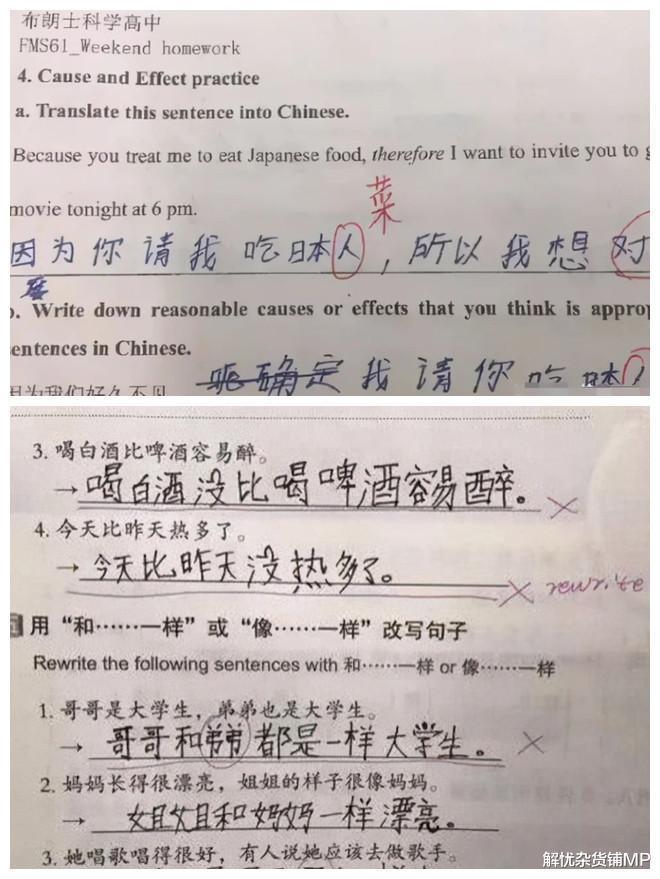 布朗士科学高中
FMS61_Weekend homework
4. Cause and Effect practice
a. Translate this sentence into Chinese.
Because you treat me to eat Japanese food, therefore I want to invite you to g
movie tonight at 6 pm.
菜
因为你请我吃日本人，所以我想对
b. Write down reasonable causes or effects that you think is approp
entences in Chinese.
因为我们好久不见 确定 我请你吃日本人
3. 喝白酒比啤酒容易醉。
→喝白酒没比喝啤酒容易醉。
4. 今天比昨天热多了。
→今天比昨天没热多了。 rewrite
用“和……一样”或“像……一样”改写句子
Rewrite the following sentences with 和……一样 or 像……一样
1. 哥哥是大学生，弟弟也是大学生。
→哥哥和弟弟都是一样大学生。
2. 妈妈长得很漂亮，姐姐的样子很像妈妈。
→姐姐和妈妈一样漂亮。
3. 她唱歌唱得很好，有人说她应该去做歌手。
解忧杂货铺MP